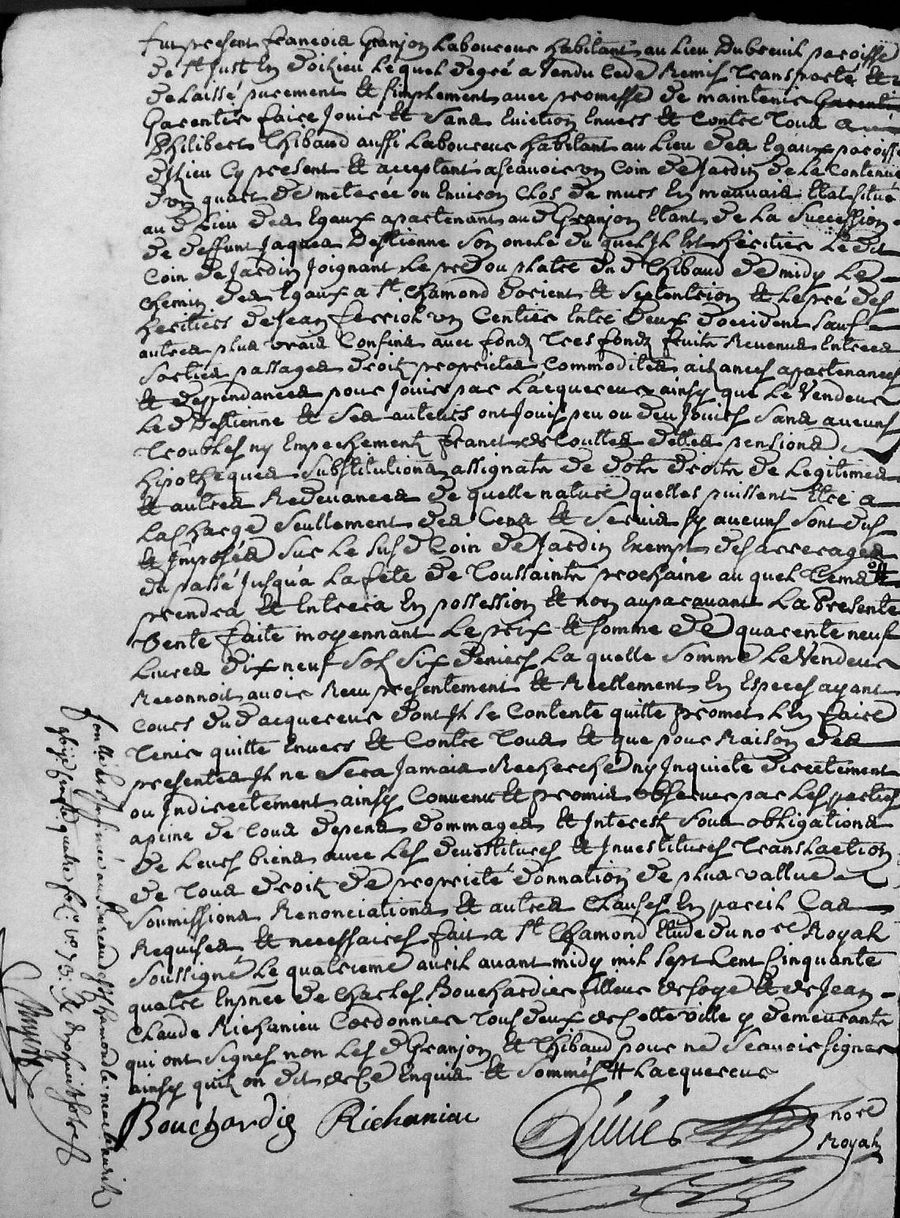 fut present francois Granjon Laboureur habitant au Lieu Dubreuil paroisse
de st Just En doizieu Lequel de gré a Vendu Cedé Remis Transporté Et
delaissé purement Et simplement avec promesse de maintenir
Garentir faire Jouir Et sans Eviction Envers Et Contre Tous a
philibert Thibaud aussi Laboureur habitant au Lieu des Egaux paroisse
dizieu Cy present Et acceptant ascavoir un Coin de Jardin de La Contenue
d'un quart de meterée ou Environ Clos de murs En mauvais Etat situé
au d Lieu des Egaux apartenant au d Granjon Etant de La Succession
de deffunt Jaques Destienne son oncle du quel Il Est heritier Le dit
Coin de Jardin Joignant Le pred ou platre du d Thibaud de midy Le
Chemin des Egaux a st Chamond d'orient Et Septentrion Et Le pré des
heritiers de Jean ferriol un Centier Entre deux d'occident Sauf
autres plus vrais Confins avec fondz Tres fondz fruits Revenus Entrées
Sorties passages droitz proprietés Commodités aizances apartenances
Et dependances pour Jouir par Lacquereur ainsy que Le Vendeur
Le d Destienne Et Ses auteurs ont Jouis peu ou deu Jouir Sans aucuns
Troubles ny Empechementz franct de Toutes dettes pensions
hipotheques Substitutions assignats de dots droits de Legitimes
Et autres Redevances de quelle nature quelles puissent Etre a
La Charge Seullement des Cens Et Servis sy aucuns sont dus
Et Imposés Sur Le Sus d Coin de Jardin Exempt des arrerages
du passé Jusqu'a La fete de Toussaints prochaine au quel Tems #
prendra Et Entrera En possession Et non auparavant La Presente
Vente faite moyennant Le prix Et somme de quarente neuf
Livres dix neuf Sols Six deniers La quelle Somme Le Vendeur
Reconnoit avoir Reçu presentement Et Reellement En Especes ayant
Cours du d acquereur dont Il se Contente quitte promet L'en faire
Tenir quitte Envers Et Contre Tous Et que pour Raison des
presentes Il ne Sera Jamais Recherché ny Inquieté directement
ou Indirectement ainsy Convenu Et promis observer par Les parties
a peine de Tous depens dommages Et Interest Sous obligations
de Leurs biens avec Les devestitures Et Investitures Translaction
de Tous droitz de proprieté donnation de plus vallue
Soumissions Renonciations Et autres Clauses En pareil Cas
Requises Et necessaires fait a st Chamond Etude du nore Royal
Soussigné Le quatrieme avril avant midy mil Sept Cent Cinquante
quatre En pnce de Charles Bouchardier filleur de soye Et de Jean
Claude Richanieu Cordonnier Tous deux de Cette ville y demeurants
qui ont signés non Les d Granjon Et Thibaud pour ne Scavoir signer
ainsy qu'il on dit de Ce Enquis Et Sommés # Lacquereur
Bouchardie Richaniau
nore
Royal